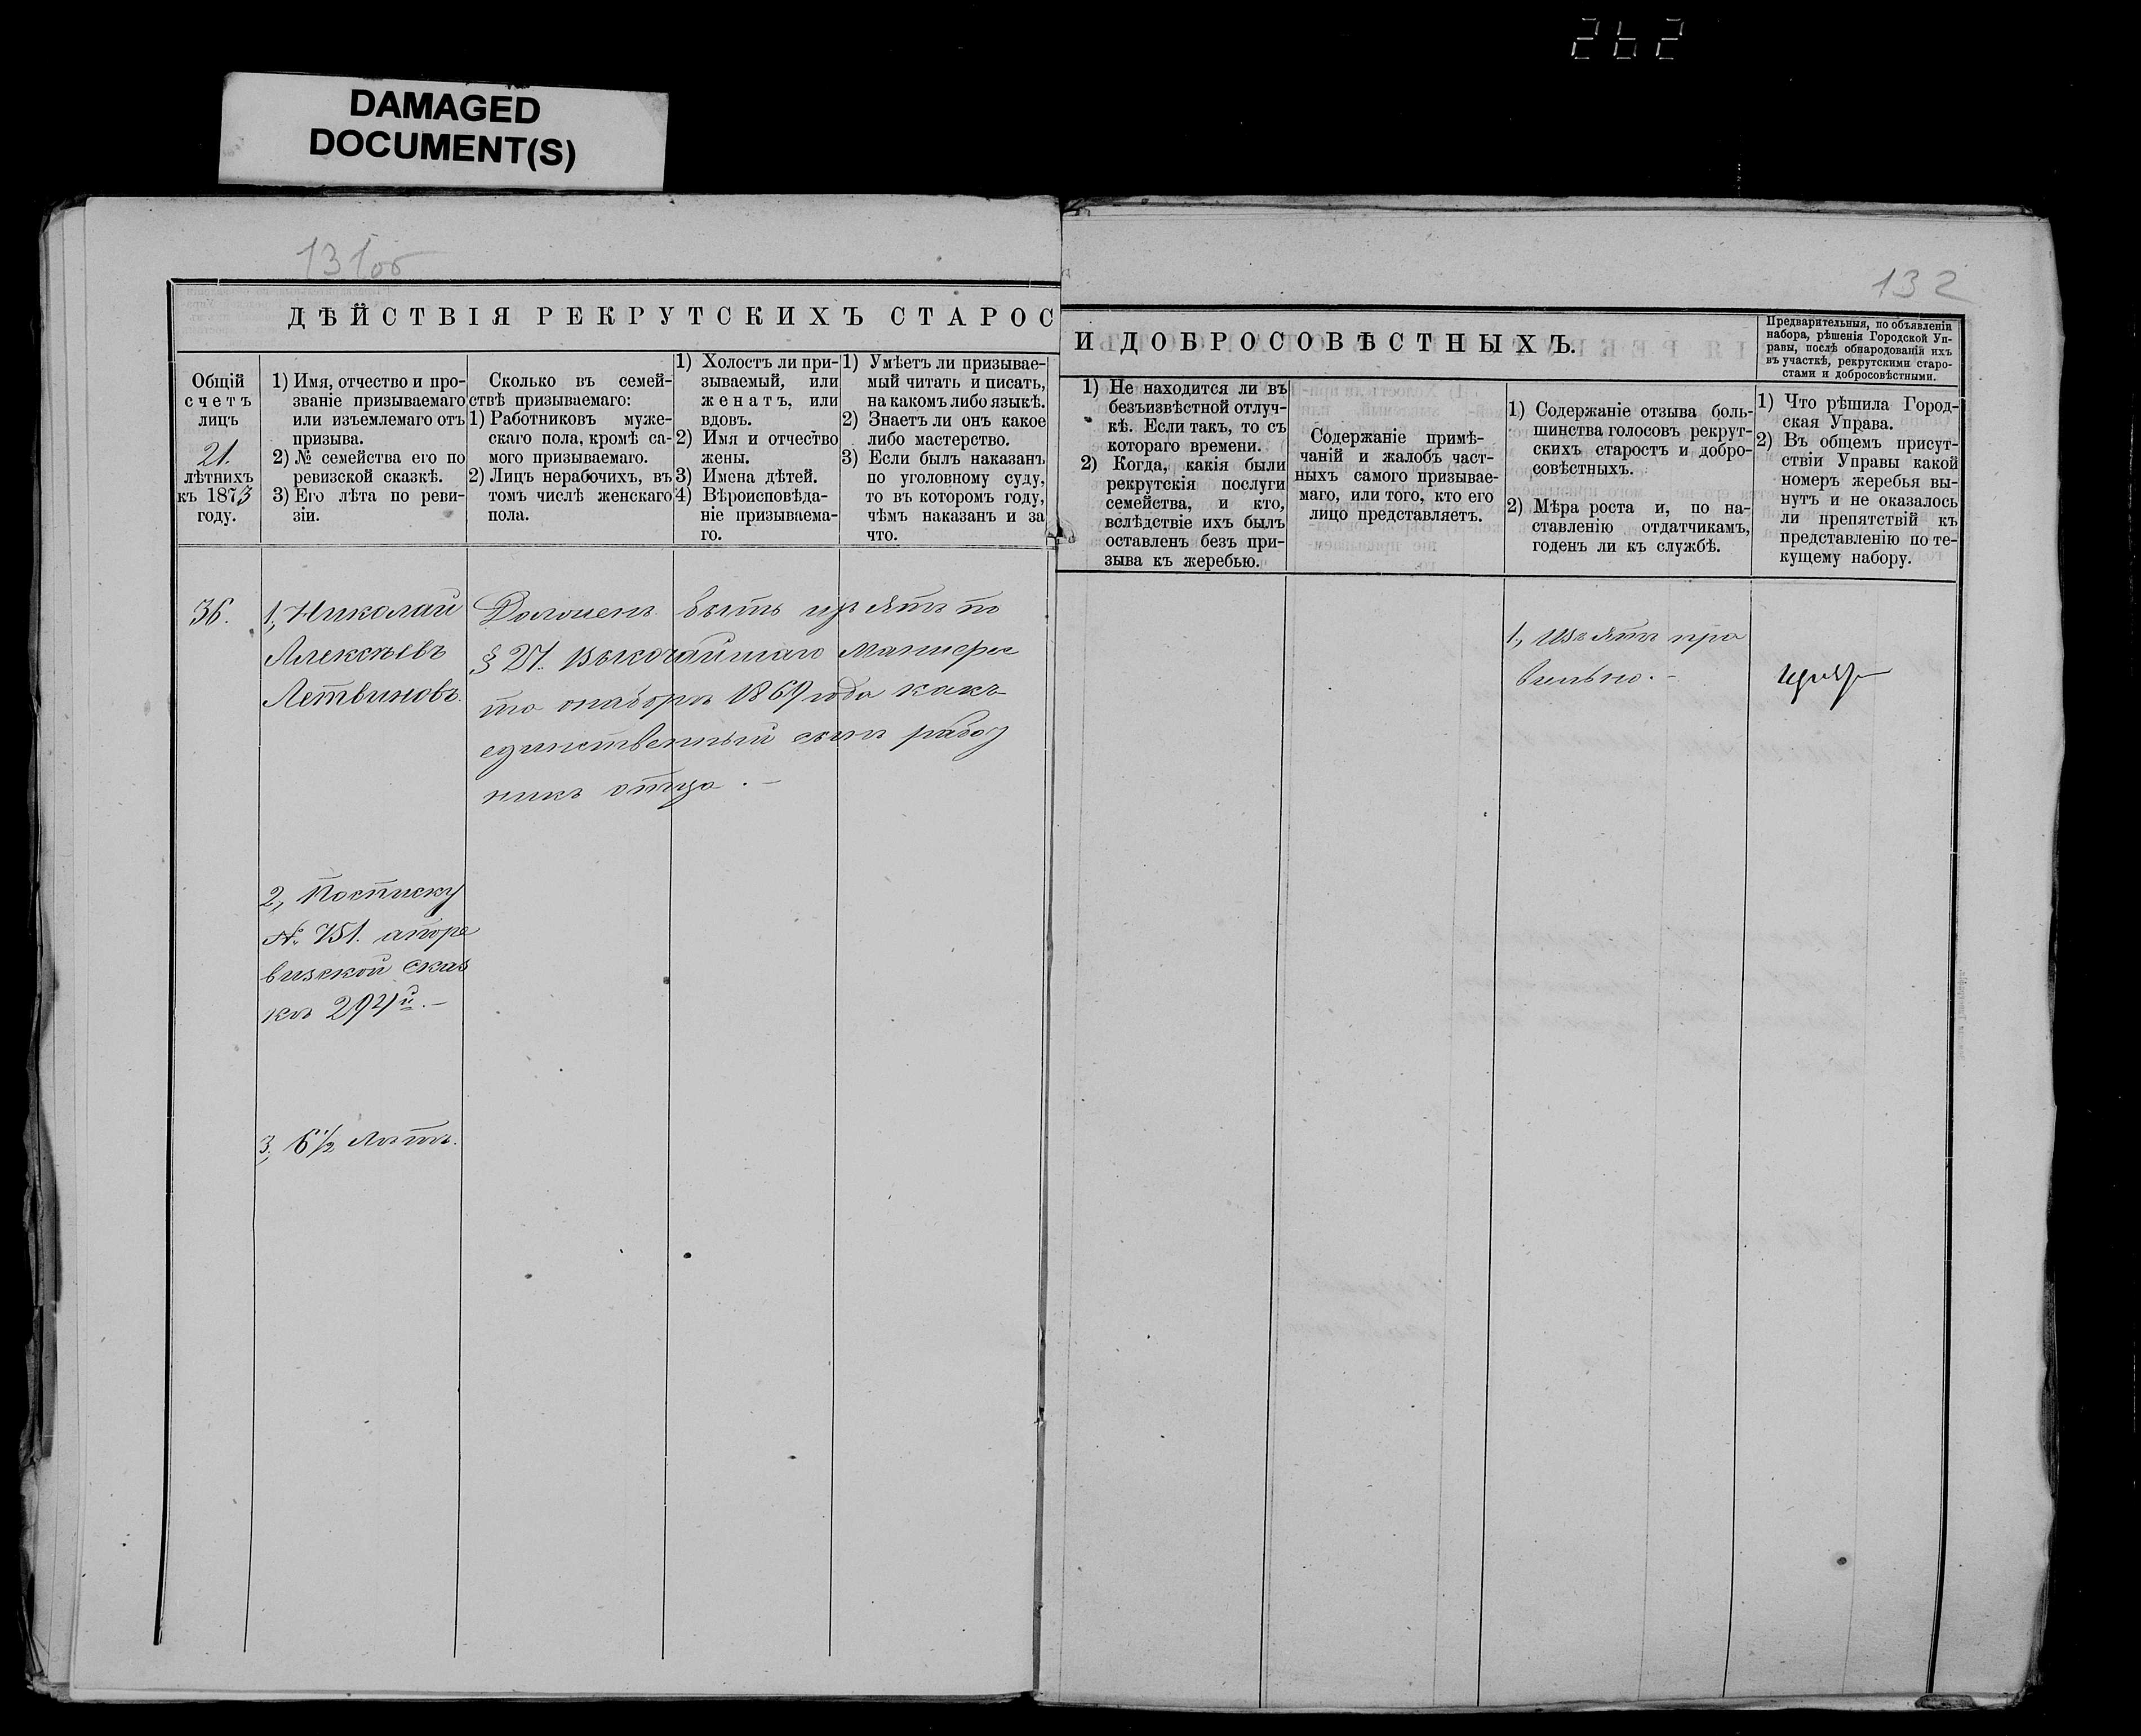 262
DAMAGED
DOCUMENT(S)
131об
132
ДѢЙСТВІЯ РЕКРУТСКИХЪ СТАРОС
И ДОБРОСОВѢСТНЫХЪ.
Предварительныя, по объявленіи
набора, рѣшенія Городской Уп-
равы, послѣ обнародованій ихъ
въ участкѣ, рекрутскими старо-
стами и добросовѣстными.
Общій
счетъ
лицъ
21.
лѣтнихъ
къ 1873
году.
1) Имя, отчество и про-
званіе призываемаго
или изъемлемаго отъ
призыва.
2) № семейства его по
ревизской сказкѣ.
3) Его лѣта по реви-
зіи.
Сколько въ семей-
ствѣ призываемаго:
1) Работниковъ муже-
скаго пола, кромѣ са-
мого призываемаго.
2) Лицъ нерабочихъ, въ
томъ числѣ женскаго
пола.
1) Холостъ ли при-
зываемый, или
женатъ, или
вдовъ.
2) Имя и отчество
жены.
3) Имена дѣтей.
4) Вѣроисповѣда-
ніе призываема-
го.
1) Умѣетъ ли призывае-
мый читать и писать,
на какомъ либо языкѣ.
2) Знаетъ ли онъ какое
либо мастерство.
3) Если былъ наказанъ
по уголовному суду,
то въ которомъ году,
чѣмъ наказанъ и за
что.
1) Не находится ли въ
безъизвѣстной отлуч-
кѣ. Если такъ, то съ
котораго времени.
2) Когда, какія были
рекрутскія послуги
семейства, и кто,
вслѣдствіе ихъ былъ
оставленъ безъ при-
зыва къ жеребью.
Содержаніе примѣ-
чаній и жалобъ част-
ныхъ самого призывае-
маго, или того, кто его
лицо представляетъ.
1) Содержаніе отзыва боль-
шинства голосовъ рекрут-
скихъ старостъ и добро-
совѣстныхъ.
2) Мѣра роста и, по на-
ставленію отдатчикамъ,
годенъ ли къ службѣ.
1) Что рѣшила Город-
ская Управа.
2) Въ общемъ присут-
ствіи Управы какой
номеръ жеребья вы-
нутъ и не оказалось
ли препятствій къ
представленію по те-
кущему набору.
36.
1, Николай
Алексѣевъ
Летвиновъ.
2, Посписку
№ 751. апоре
визской сказ
кѣ 294й.–
3, 6½ лѣтъ.
Долженъ быть изъятъ по
§ 27. Высочайшаго Манифес
та онаборѣ 1869 года какъ
единственный сынъ работ
никъ отца.–
1, Изъятъ пра
вильно.–